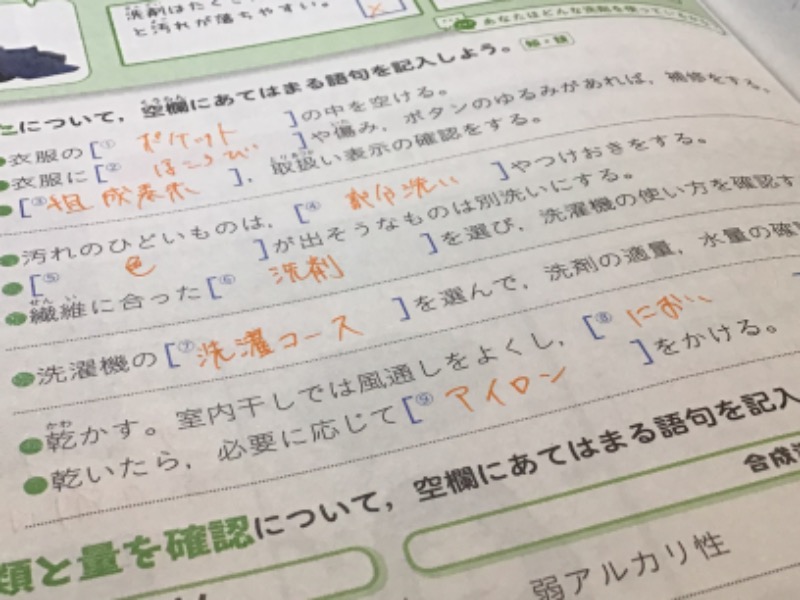 洗剤はたく
と汚れが落ちやすい。 [×]
あなたはどんな洗剤を使って
について，空欄にあてはまる語句を記入しよう。
●衣服の[① ポケット ]の中を空ける。
●衣服に[② ほころび ]や傷み，ボタンのゆるみがあれば，補修をする。
●[③組成表示 ]，取扱い表示の確認をする。
●汚れのひどいものは，[④ 部分洗い ]やつけおきをする。
●[⑤ 色 ]が出そうなものは別洗いにする。
●繊維に合った[⑥ 洗剤 ]を選び，洗濯機の使い方を確認す
●洗濯機の[⑦洗濯コース ]を選んで，洗剤の適量，水量の確
●乾かす。室内干しでは風通しをよくし，[⑧ におい
●乾いたら，必要に応じて[⑨ アイロン ]をかける。
と量を確認について，空欄にあてはまる語句を記入
合成
弱アルカリ性